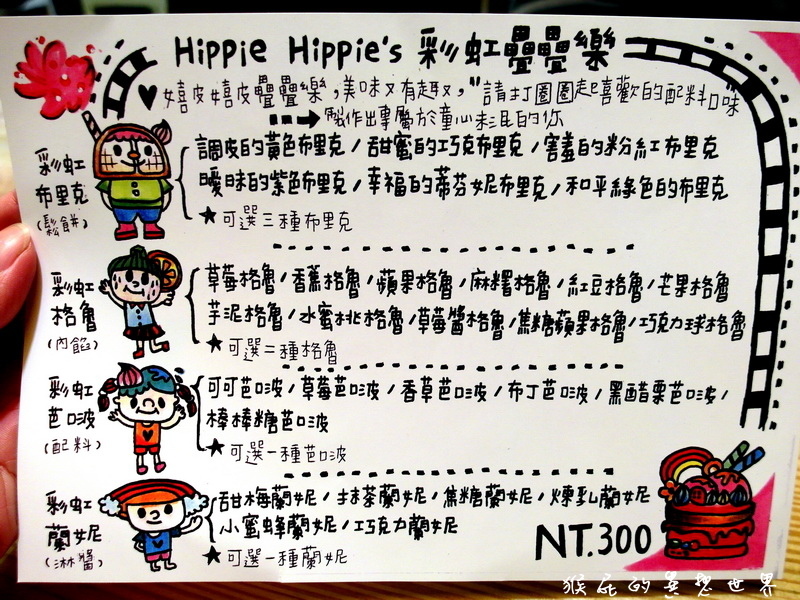 Hippie Hippie's 彩虹疊疊樂
♥嬉皮嬉皮疊疊樂，美味又有趣，"請打圈圈起喜歡的配料口味"
製作出專屬於童心未泯的你
彩虹
布里克
(鬆餅)
調皮的黃色布里克/甜蜜的巧克布里克/害羞的粉紅布里克
曖昧的紫色布里克/幸福的蒂芬妮布里克/和平綠色的布里克
★可選三種布里克
彩虹
格魯
(內餡)
草莓格魯/香蕉格魯/蘋果格魯/麻糬格魯/紅豆格魯/芒果格魯
芋泥格魯/水蜜桃格魯/草莓醬格魯/焦糖蘋果格魯/巧克力球格魯
★可選二種格魯
彩虹
芭啵
(配料)
可可芭啵/草莓芭啵/香草芭啵/布丁芭啵/黑醋栗芭啵/
棒棒糖芭啵
★可選一種芭啵
彩虹
蘭妮
(淋醬)
甜梅蘭妮/抹茶蘭妮/焦糖蘭妮/煉乳蘭妮
小蜜蜂蘭妮/巧克力蘭妮
★可選一種蘭妮
NT.300
猴屁的異想世界